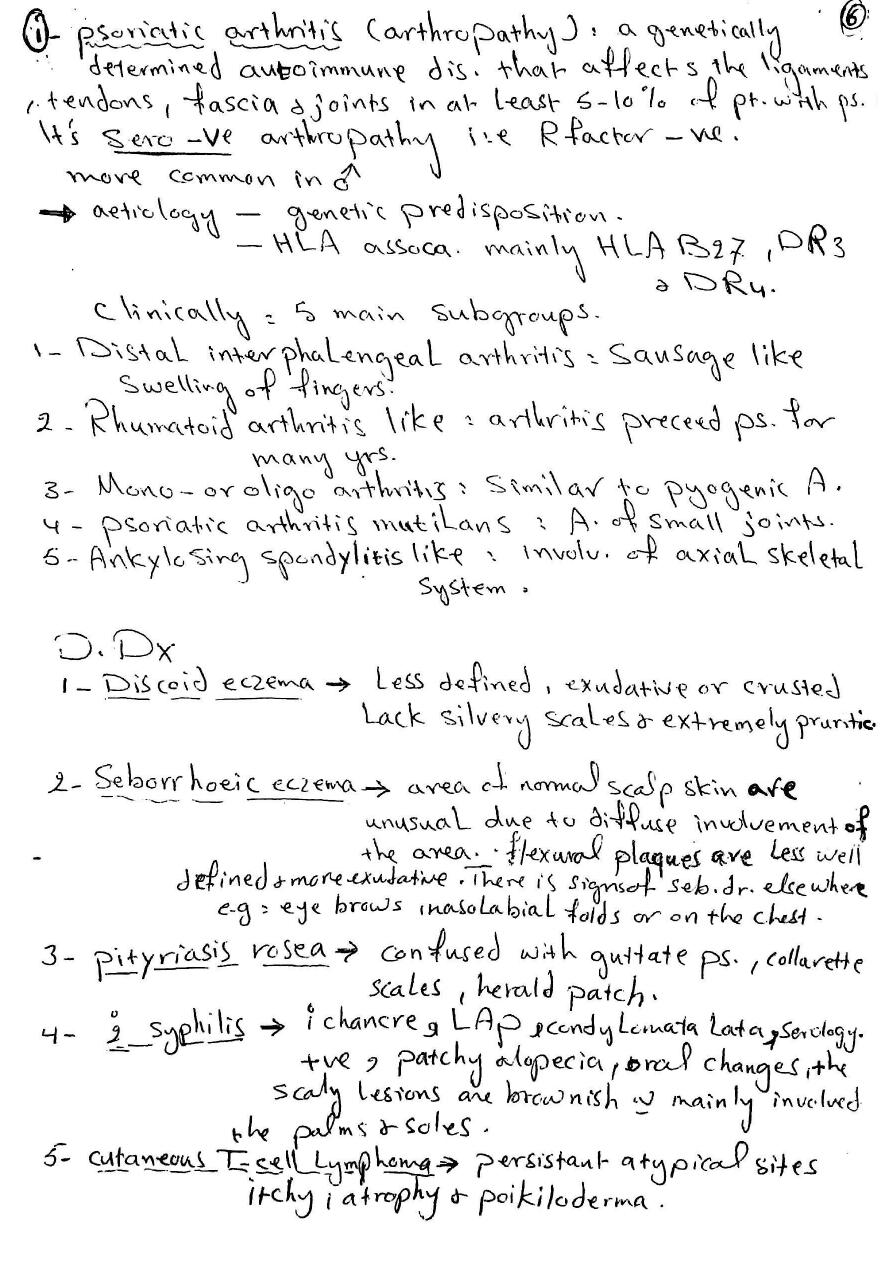 i- psoriatic arthritis (arthropathy): a genetically 6
determined autoimmune dis. that affects the ligaments
, tendons, fascia & joints in at least 5-10% of pt. with ps.
It's sero -ve arthropathy i.e R factor -ve.
more common in ♂
→ aetiology - genetic predisposition.
- HLA assoca. mainly HLA B27, DR3
& DR4.
Clinically: 5 main subgroups.
1- Distal interphalengeal arthritis: Sausage like
swelling of fingers.
2- Rhumatoid arthritis like: arthritis preceed ps. for
many yrs.
3- Mono- or oligo arthritis: Similar to pyogenic A.
4- psoriatic arthritis mutilans: A. of small joints.
5- Ankylosing spondylitis like: involv. of axial skeletal
system.
D.Dx
1- Discoid eczema → Less defined, exudative or crusted
Lack silvery scales & extremely pruritic.
2- Seborrhoeic eczema → area of normal scalp skin are
unusual due to diffuse involvement of
the area. flexural plaques are less well
defined & more exudative. There is signs of seb. dr. elsewhere
e.g: eye brows, nasolabial folds or on the chest.
3- pityriasis rosea → confused with guttate ps., collarette
scales, herald patch.
4- 2° syphilis → i chancre, LAP, condylomata lata, serology.
+ve, patchy alopecia, oral changes, the
scaly lesions are brownish mainly involved
the palms & soles.
5- cutaneous T-cell Lymphoma → persistant atypical sites
itchy, atrophy & poikiloderma.